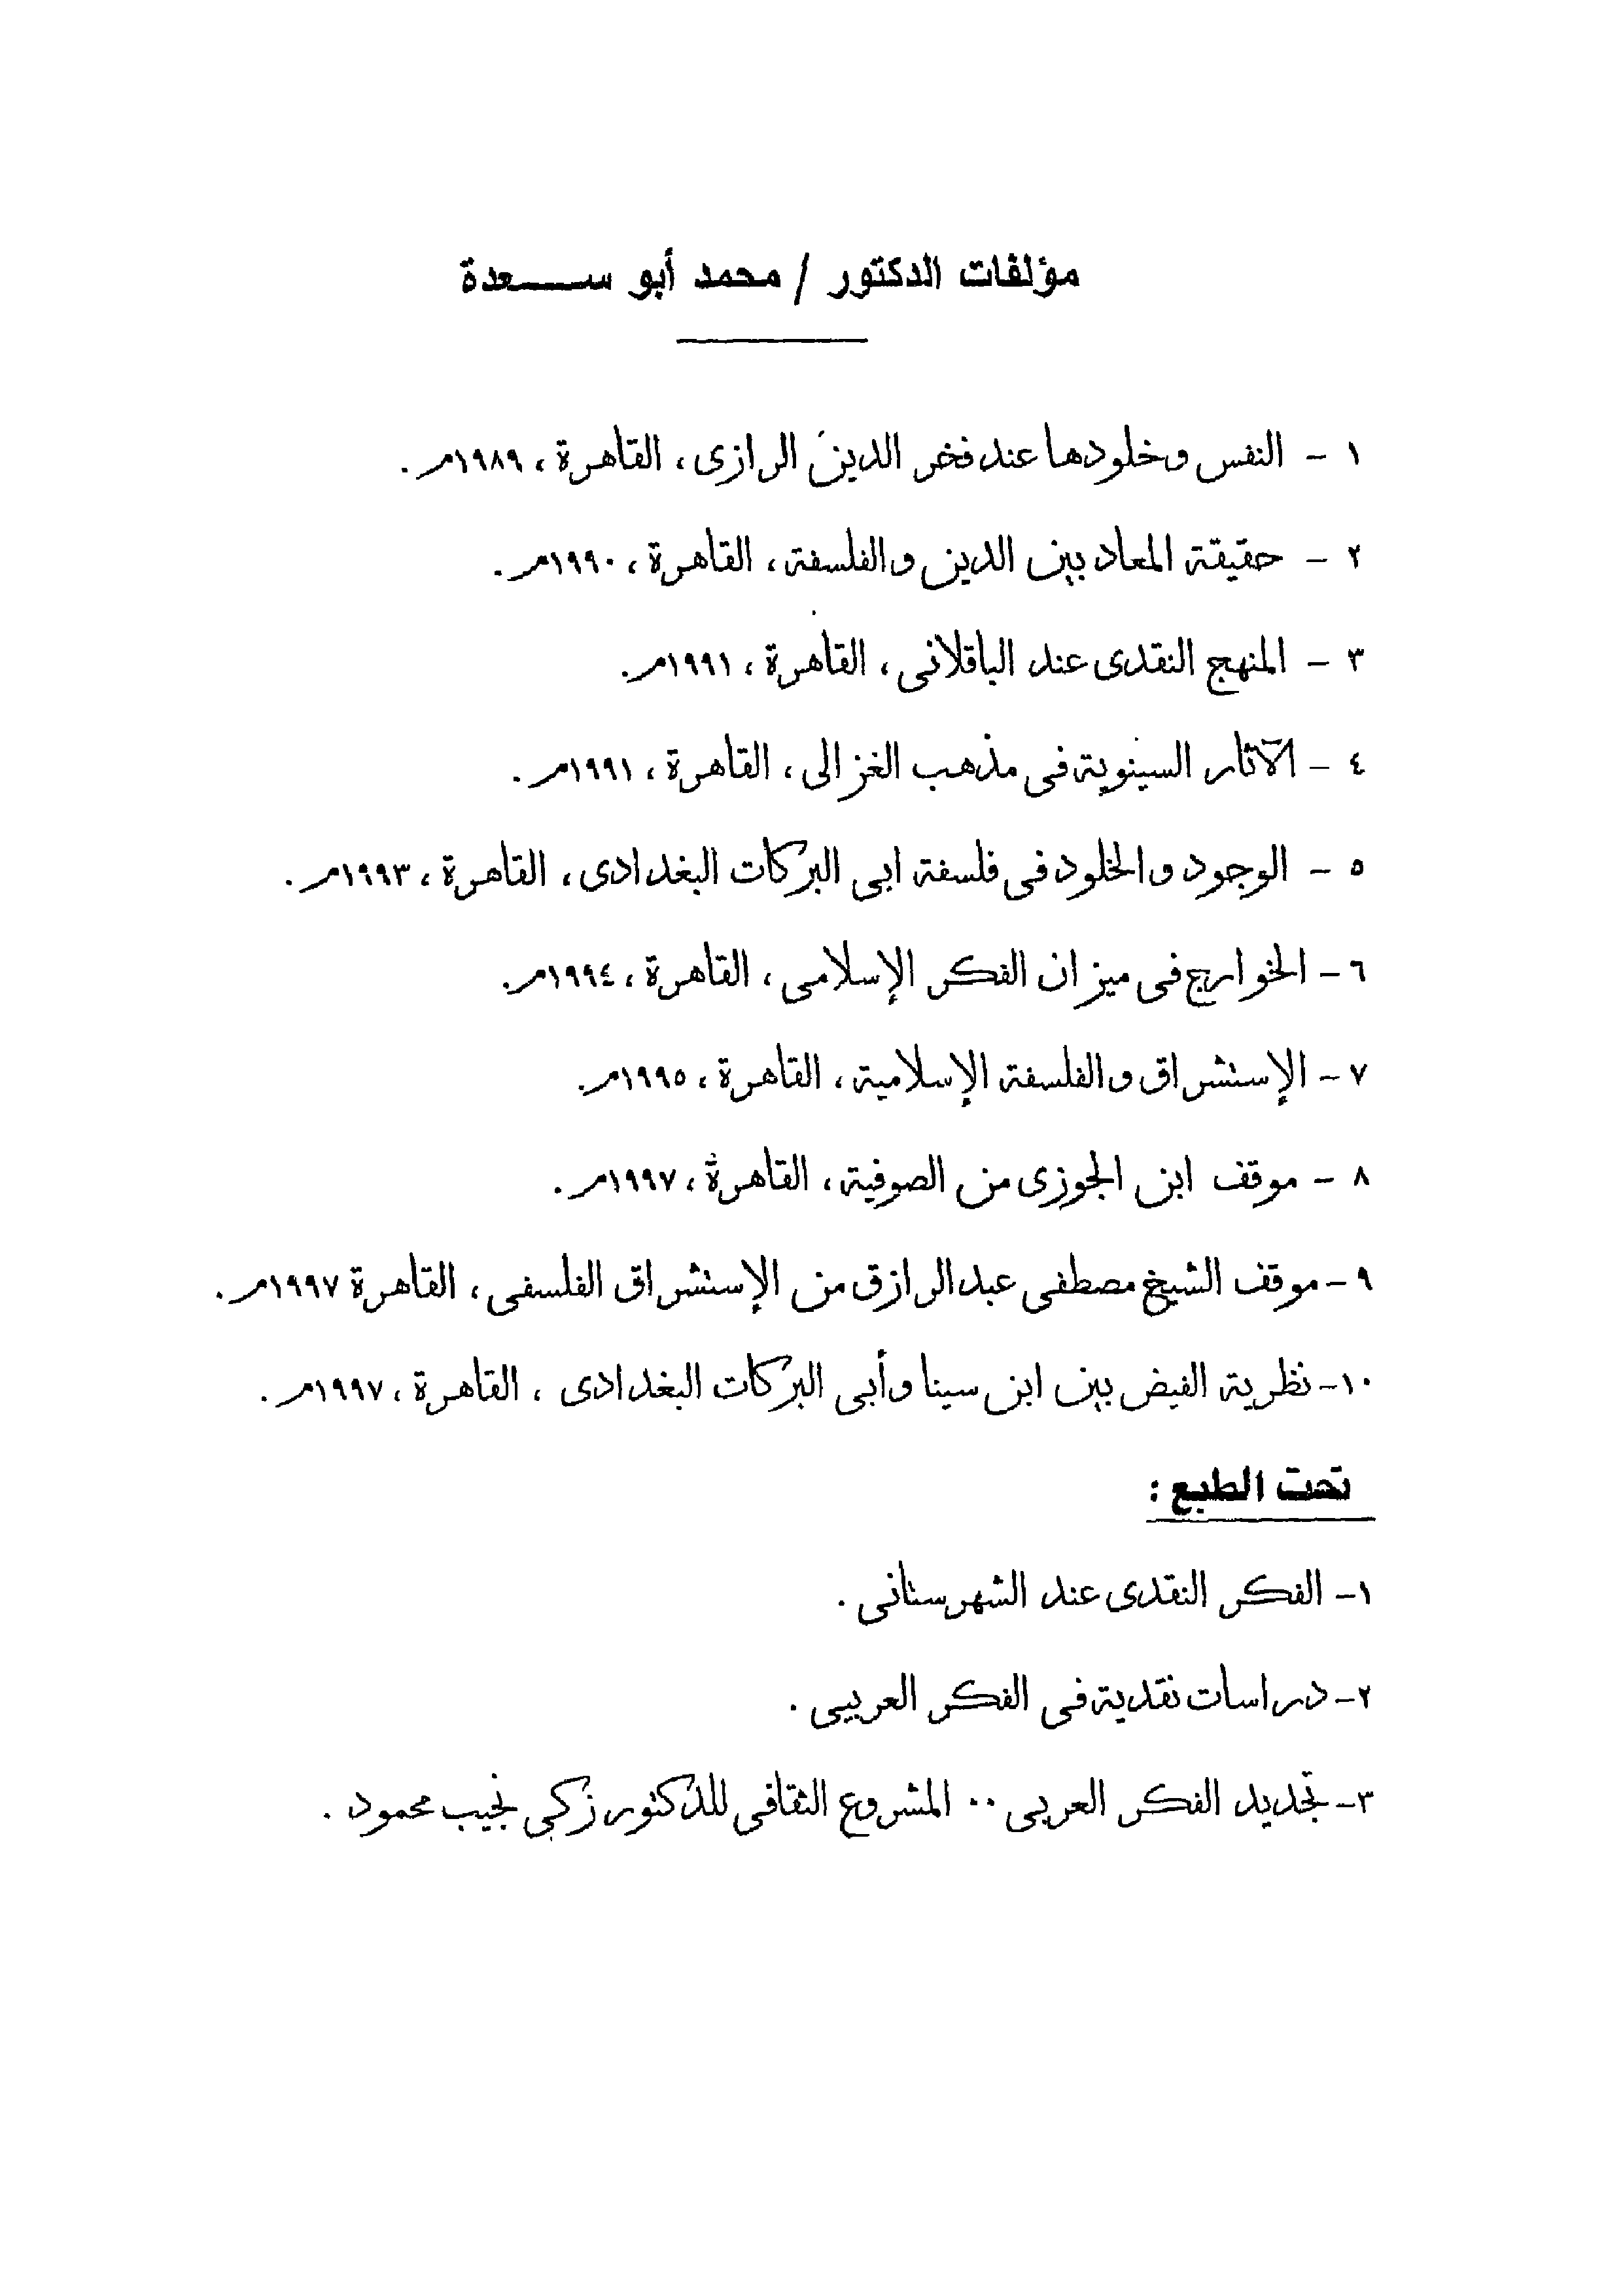 مؤلفات الدكتور / محمد أبو ســـعدة
١ - النفس وخلودها عند فخر الدين الرازى ، القاهرة ، ١٩٨٩م .
٢ - حقيقة المعاد بين الدين والفلسفة ، القاهرة ، ١٩٩٠م .
٣ - المنهج النقدى عند الباقلانى ، القاهرة ، ١٩٩١م .
٤ - الآثار السينوية فى مذهب الغزالى ، القاهرة ، ١٩٩١م .
٥ - الوجود والخلود فى فلسفة ابى البركات البغدادى ، القاهرة ، ١٩٩٣م .
٦ - الخوارج فى ميزان الفكر الإسلامى ، القاهرة ، ١٩٩٤م .
٧ - الإستشراق والفلسفة الإسلامية ، القاهرة ، ١٩٩٥م .
٨ - موقف ابن الجوزى من الصوفية ، القاهرة ، ١٩٩٧م .
٩ - موقف الشيخ مصطفى عبد الرازق من الإستشراق الفلسفى ، القاهرة ١٩٩٧م .
١٠- نظرية الفيض بين ابن سينا وأبى البركات البغدادى ، القاهرة ، ١٩٩٧م .
تحت الطبع :
١- الفكر النقدى عند الشهرستانى .
٢- دراسات نقدية فى الفكر العربى .
٣- تجديد الفكر العربى ٠٠ المشروع الثقافى للدكتور زكى نجيب محمود .